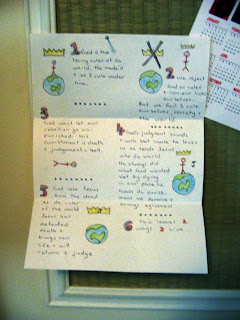 1 God is the
loving ruler of the
world. He made it
& us to rule under
him.
2 We reject
God as ruler
& run our lives
ourselves.
But we fail to rule
ourselves, society &
the world.
3
God won't let our
rebellion go un-
punished: this
punishment is death
& judgement & hell
4 God's judgment sounds
harsh but cause he loves
us he sends Jesus
into da world
He always did
what God wanted
Yet by dying
in our place he
takes da punish-
ment we deserve &
brings forgiveness!
5 God rose Jesus
from the dead
as da ruler
of the world
Jesus has
defeated
death &
brings new
life & will
return 2 judge
6 This leaves 2
ways 2 live...